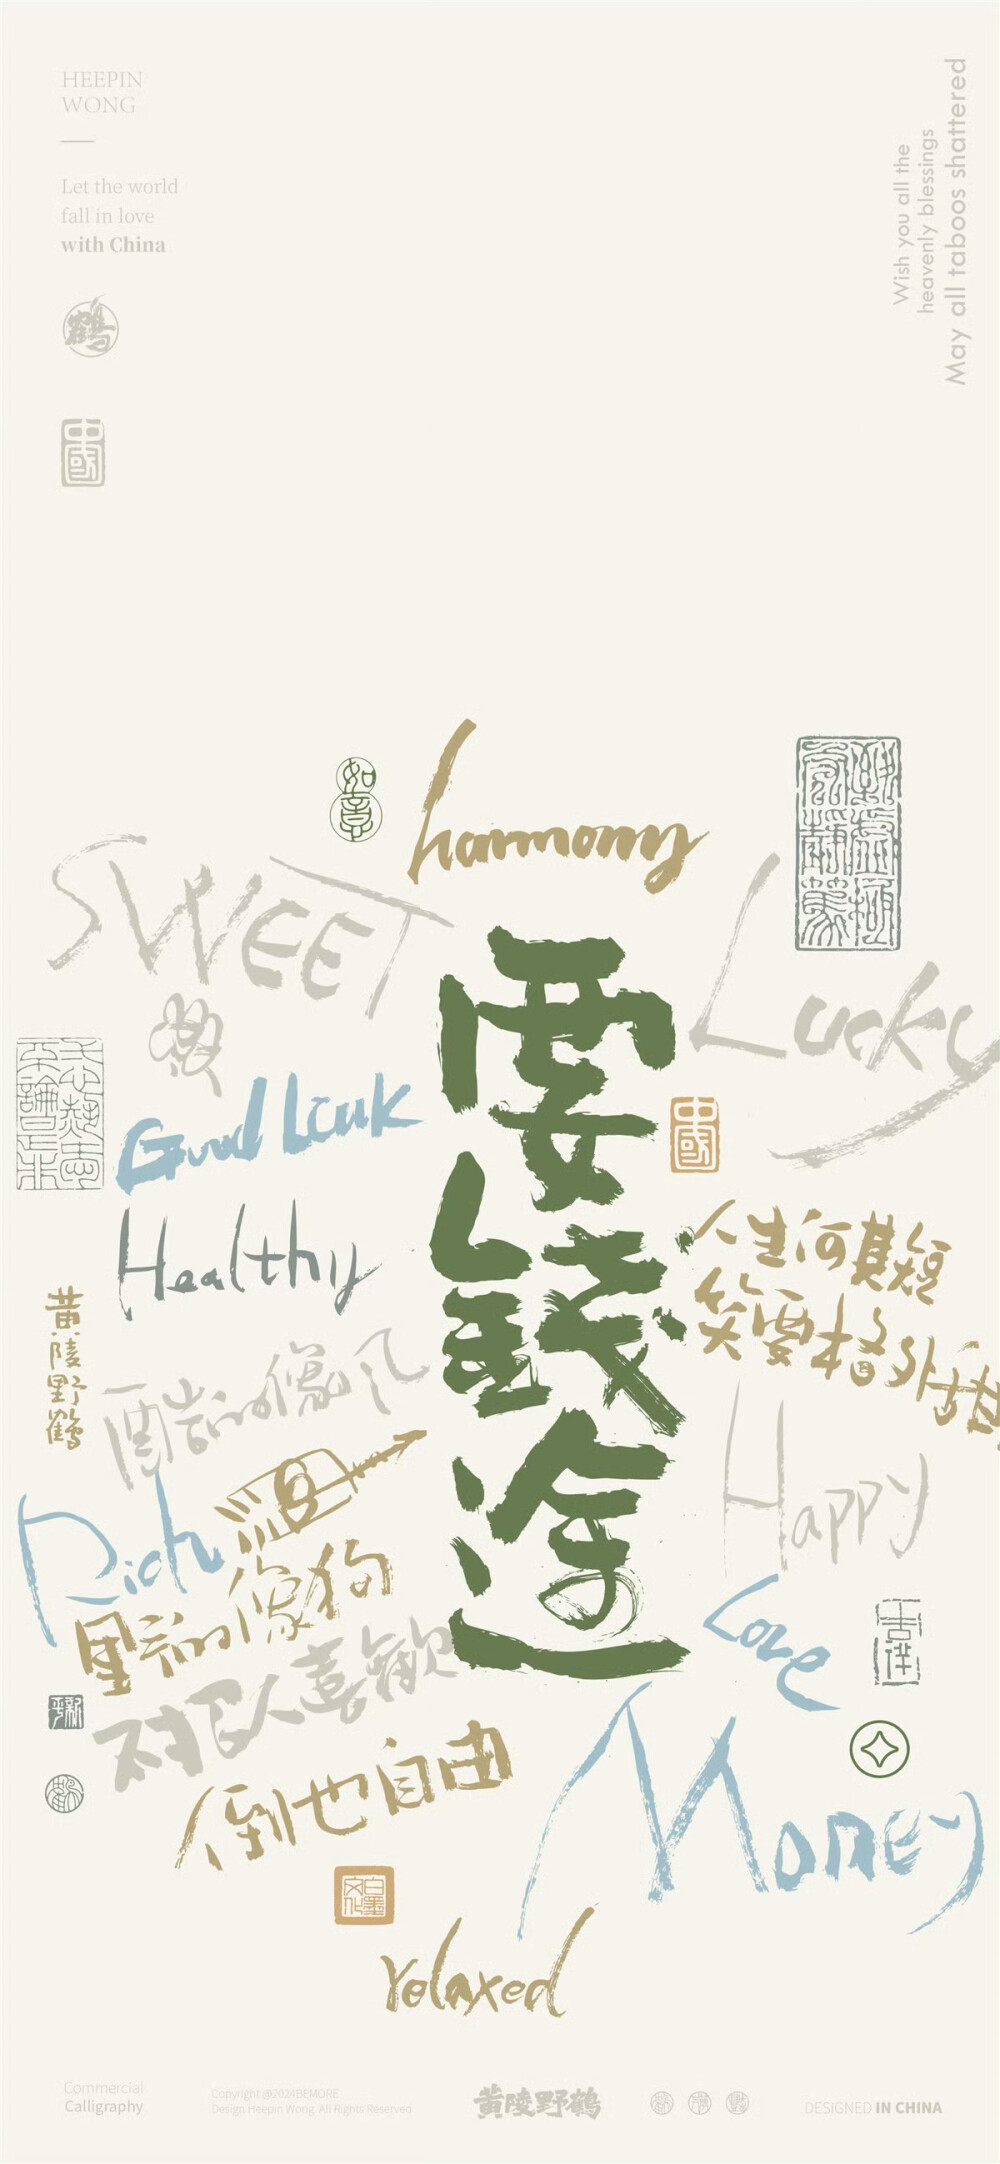 HEEPIN
WONG
Let the world
fall in love
with China
鶴
中國
Wish you all the
heavenly blessings
May all taboos shattered
harmony
如意
SWEET
Lucky
要錢途
中國
Good Luck
Healthy
人生何其短
笑要格外甜
黄陵野鶴
酷的像风
Happy
Rich
累的像狗
Love
不讨人喜歡
倒也自由
Money
白墨
文化
relaxed
Commercial
Calligraphy
Copyright @2024BEMORE
Design Heepin Wong. All Rights Reserved
黄陵野鶴
DESIGNED IN CHINA